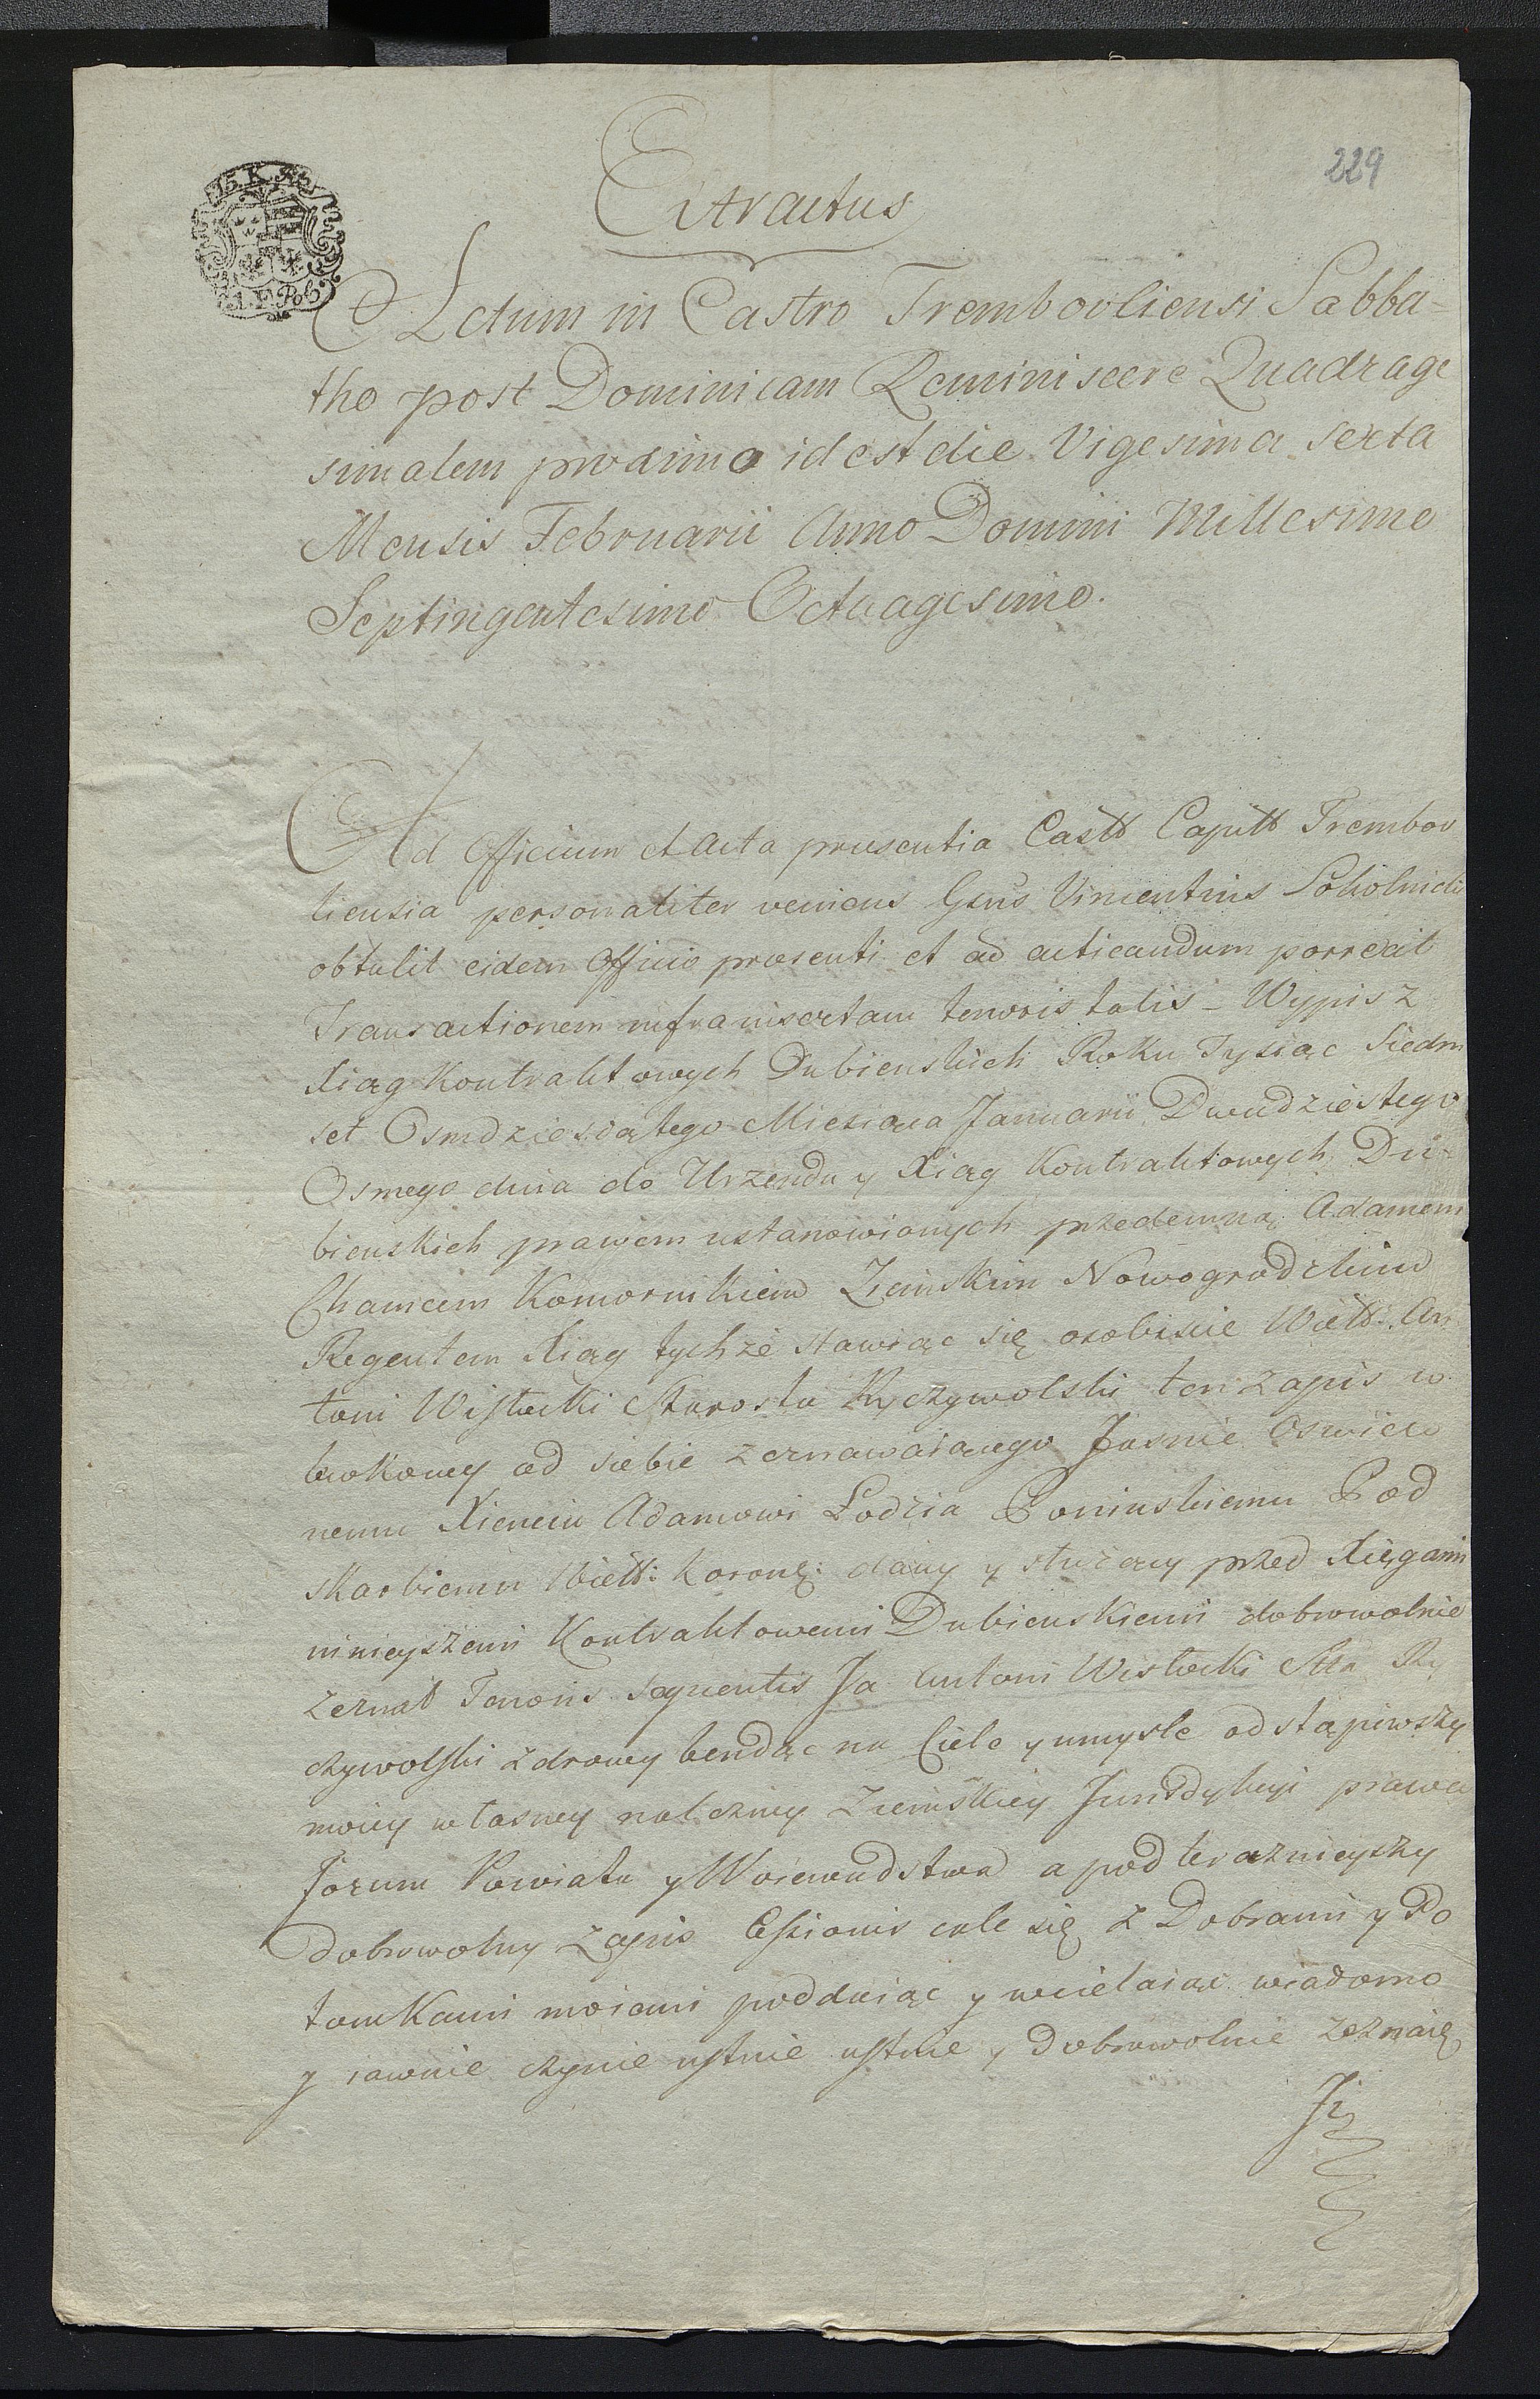 229
15. K. 
I. F. Pol.
Extractus
Actum in Castro Trembovliensi Sabba-
tho post Dominicam Reminiscere Quadrage
simalem proximo id est die Vigesima sexta
Mensis Februarii Anno Domini Millesimo
Septingentesimo Octuagesimo.
Ad Officium et Acta praesentia Castr Capitt Trembov
liensia personaliter veniens Gsus Vincentius Soholnicki
obtulit eidem Officio praesenti et ad acticandum porrexit
Transactionem infrainsertam tenoris talis - Wypis z
Xiąg Kontraktowych Dubienskich Roku Tysiąc Siedm
set Osmdziesiątego Miesiąca Januarii Dwudziestego
Osmego dnia do Urzendu y Xiąg Kontraktowych Du-
bienskich prawem ustanowionych przedemną Adamem
Chamcem Komornikiem Ziemskim Nowogrodzkim
Regentem Xiąg tychże stawiąc się osobiscie Wiel: An
toni Wisłocki Starosta Ryczywolski ten zapis w
krokowey od siebie zeznawaiącego Jasnie Oswieco
nemu Xienciu Adamowi Łodzia Poninskiemu Pod
skarbiemu Wiel: Koronę: dany y służący przed Xięgami
ninieyszemi Kontraktowemi Dubienskiemi dobrowolnie
zeznał Tenoris sequentis Ja Antoni Wisłocki Stta Ry
czywolski zdrowy bendąc na Ciele y umysle odstąpiwszy
moiey własney nalezney Ziemskiey Jurisdykcyi prawa
Forum Powiatu y Woiewudstwa a pod teraznieyszy
dobrowolny Zapis Cessionis cale się z Dobrami y Po
tomkami moiemi poddaiąc y wcielaiąc wiadomo
y iawnie czynie ustnie ustnie y dobrowolnie zeznaię
Iż